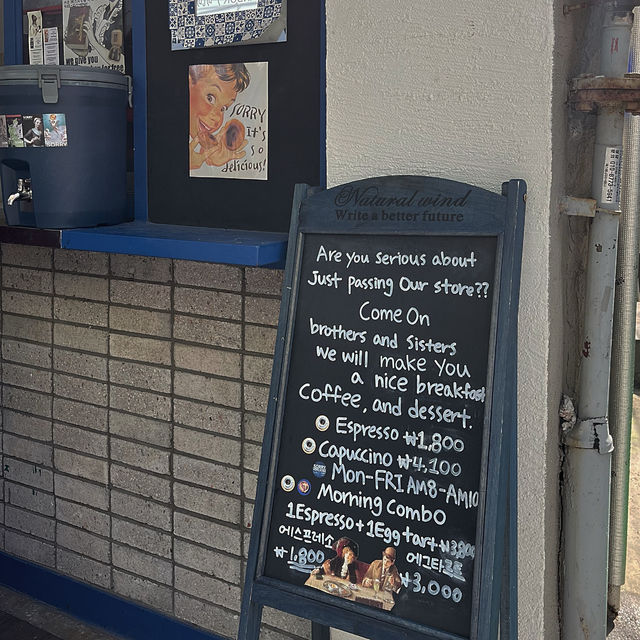 we give you
for free
SORRY
It's
so
delicious!
Natural wind
Write a better future
Are you serious about
Just passing Our store??
Come On
brothers and Sisters
we will make you
a nice breakfast
Coffee, and dessert.
Espresso ₩1,800
Capuccino ₩4.100
Mon-FRI AM8-AM10
Morning Combo
1Espresso+1Eggtart ₩3800
에스프레소 에그타르트
₩1,800 ₩3,000